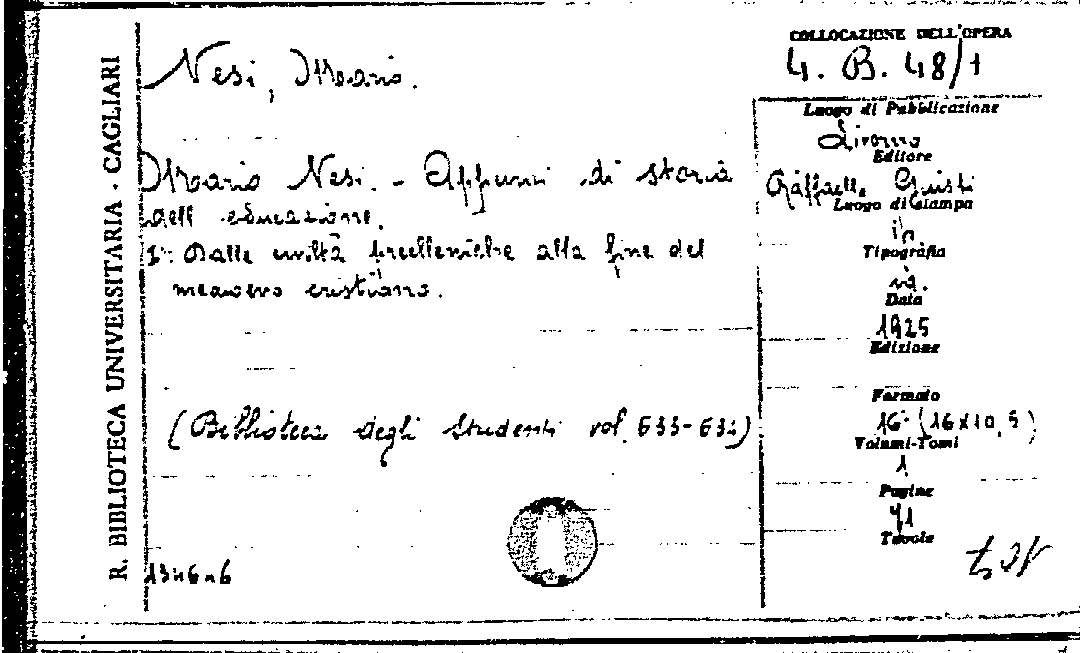 R. BIBLIOTECA UNIVERSITARIA - CAGLIARI
Nesi, Mario.
Mario Nesi. - Appunti di storia
dell'educazione.
1°: Dalle civiltà preelleniche alla fine del
medioevo cristiano.
(Biblioteca degli Studenti vol. 633-634)
COLLOCAZIONE DELL'OPERA
4. B. 48/1
Luogo di Pubblicazione
Livorno
Editore
Raffaello Giusti
Luogo di Stampa
ib
Tipografia
id.
Data
1925
Edizione
Formato
16° (16x10,5)
Volumi-Tomi
1
Pagine
71
Tavole